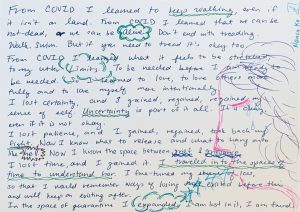 From COVID I learned to keep walking, even if
it isn't on land. From COVID I learned that we can be
not-dead, or we can be Alive. Don't end with treading.
Walk. Swim. But if you need to tread it's okay too.
From COVID I learned what it feels to be
to my utter Limits. To be needed before I
be needed. So I learned to love, to love others more
fully and to love myself more intentionally
I lost certainty, and I gained, regained,
sense of self. Uncertainty is part of it all. It is okay
even if it is not okay.
I lost patience, and I gained, regained, took back my
fight. Now I know what to release and what to hang onto
Now I know the space between
I lost time, and I gained it. I traveled into the spaces of
time to understand her. I fine-tuned my
so that I would remember ways of being that existed before then
and will keep on existing after.
In the space of quarantine I expanded. I am